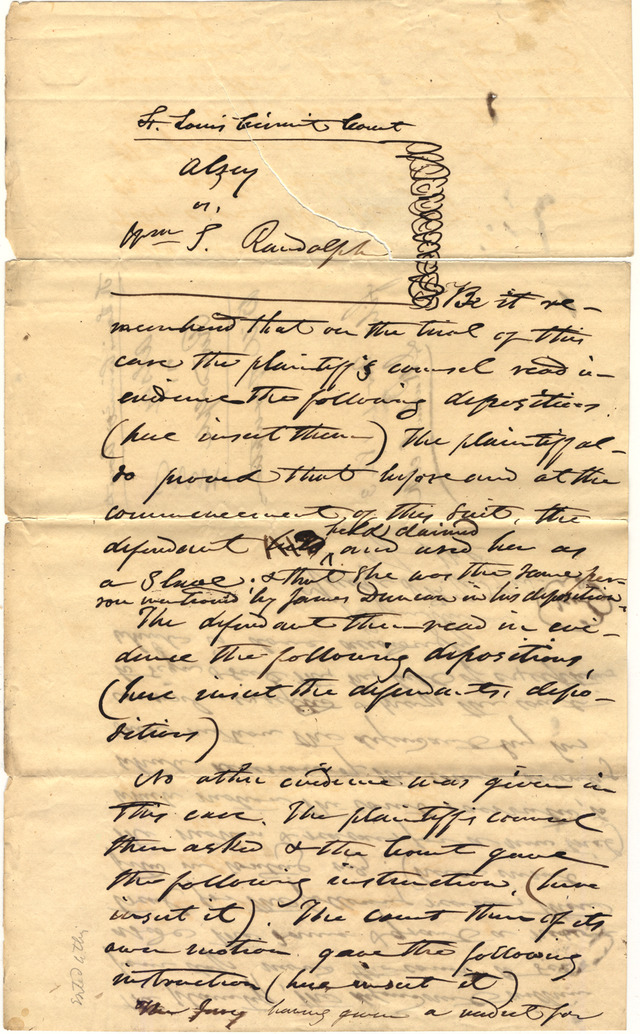 St. Louis Circuit Court
Alsey
vs.
Wm S. Randolph
Be it re-
membered that on the trial of this
case the plaintiff's counsel read in
evidence the following depositions.
(here insert them) The plaintiff al-
so proved that before and at the
commencement of this suit, the
defendant held claimed and used her as
a Slave; & that she was the same per-
son mentioned by James Duncan in his deposition.
The defendant then read in evi-
dence the following depositions,
(here insert the defendants, depo-
sitions)
No other evidence was given in
this case. The plaintiffs counsel
then asked & the Court gave
the following instruction, (here
insert it). The court then of its
own motion gave the following
instruction (here insert it)
The Jury having given a verdict for